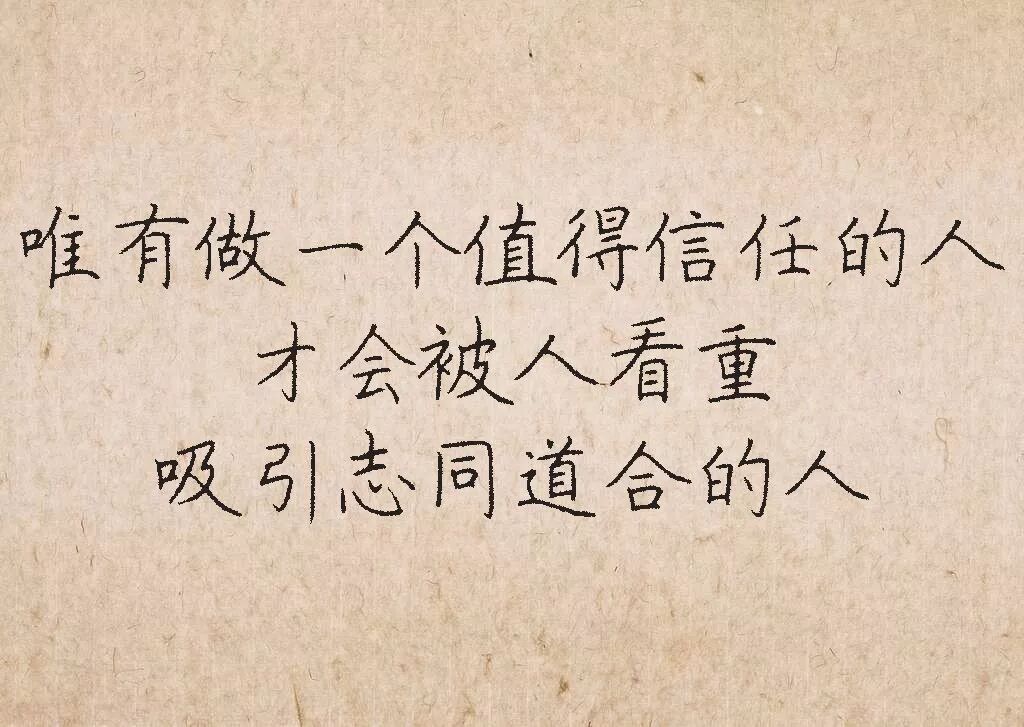 唯有做一个值得信任的人
才会被人看重
吸引志同道合的人